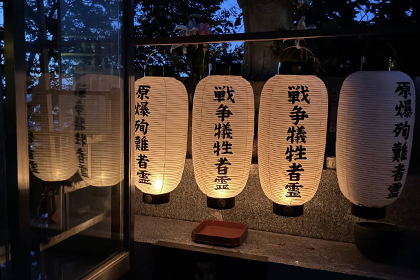 原爆殉難者霊
戦争犠牲者霊
戦争犠牲者霊
原爆殉難者霊